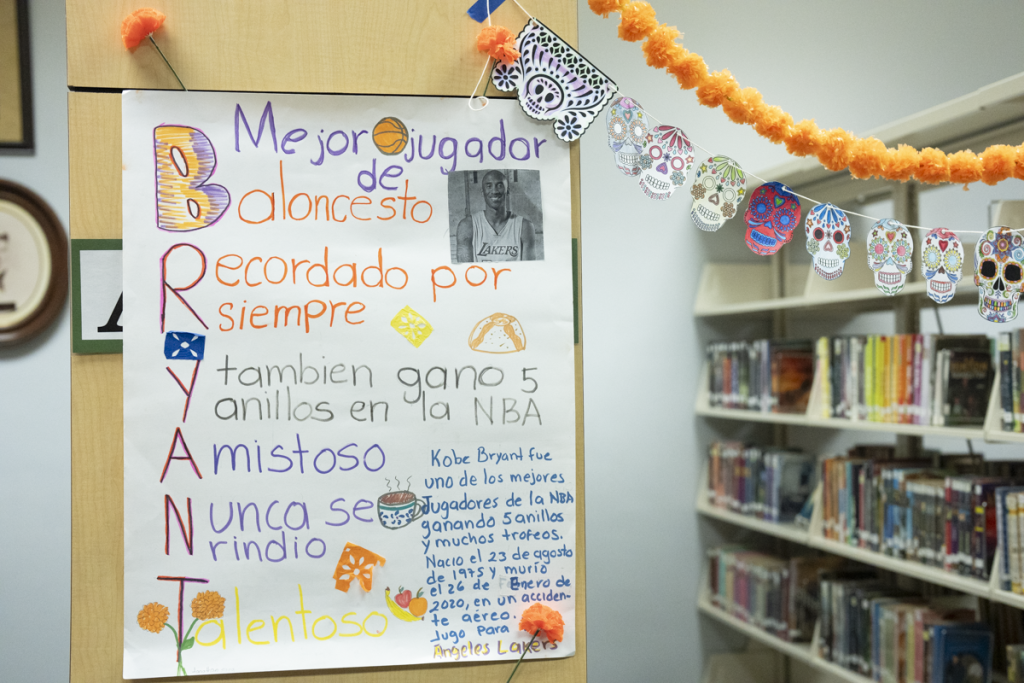 Mejor jugador
de
Baloncesto
LAKERS
Recordado por
siempre
Y tambien gano 5
anillos en la NBA
Amistoso
Nunca se
rindio
Talentoso
Kobe Bryant fue
uno de los mejores
Jugadores de la NBA
ganando 5 anillos
y muchos trofeos.
Nacio el 23 de agosto
de 1975 y murio
el 26 de Enero de
2020, en un acciden-
te aéreo.
Jugo para
Angeles Lakers